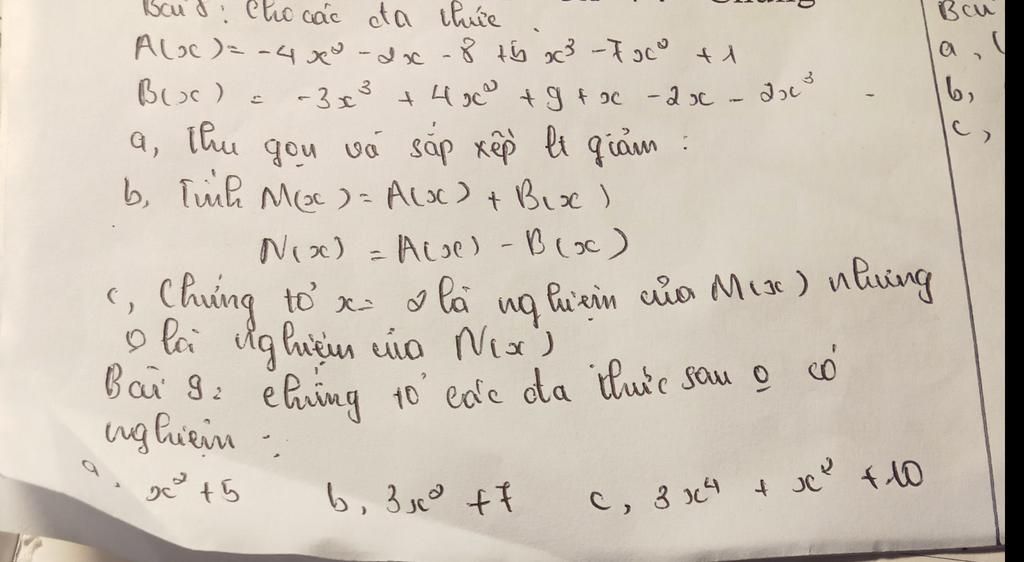 Bài 8: Cho các đa thức.
A(x) = -4x² - 2x - 8 + 5x³ - 7x² + 1
B(x) = -3x³ + 4x² + 9 + x - 2x - 2x³
a, Thu gọn và sắp xếp lt giảm:
b, Tính M(x) = A(x) + B(x)
N(x) = A(x) - B(x)
c, Chứng tỏ x = 2 là nghiệm của M(x) nhưng
o là nghiệm của N(x)
Bài 9: chứng tỏ các đa thức sau o có
nghiệm:
a, x² + 5 b, 3x² + 7 c, 3x⁴ + x² + 10
Bài
a, (
b,
c,